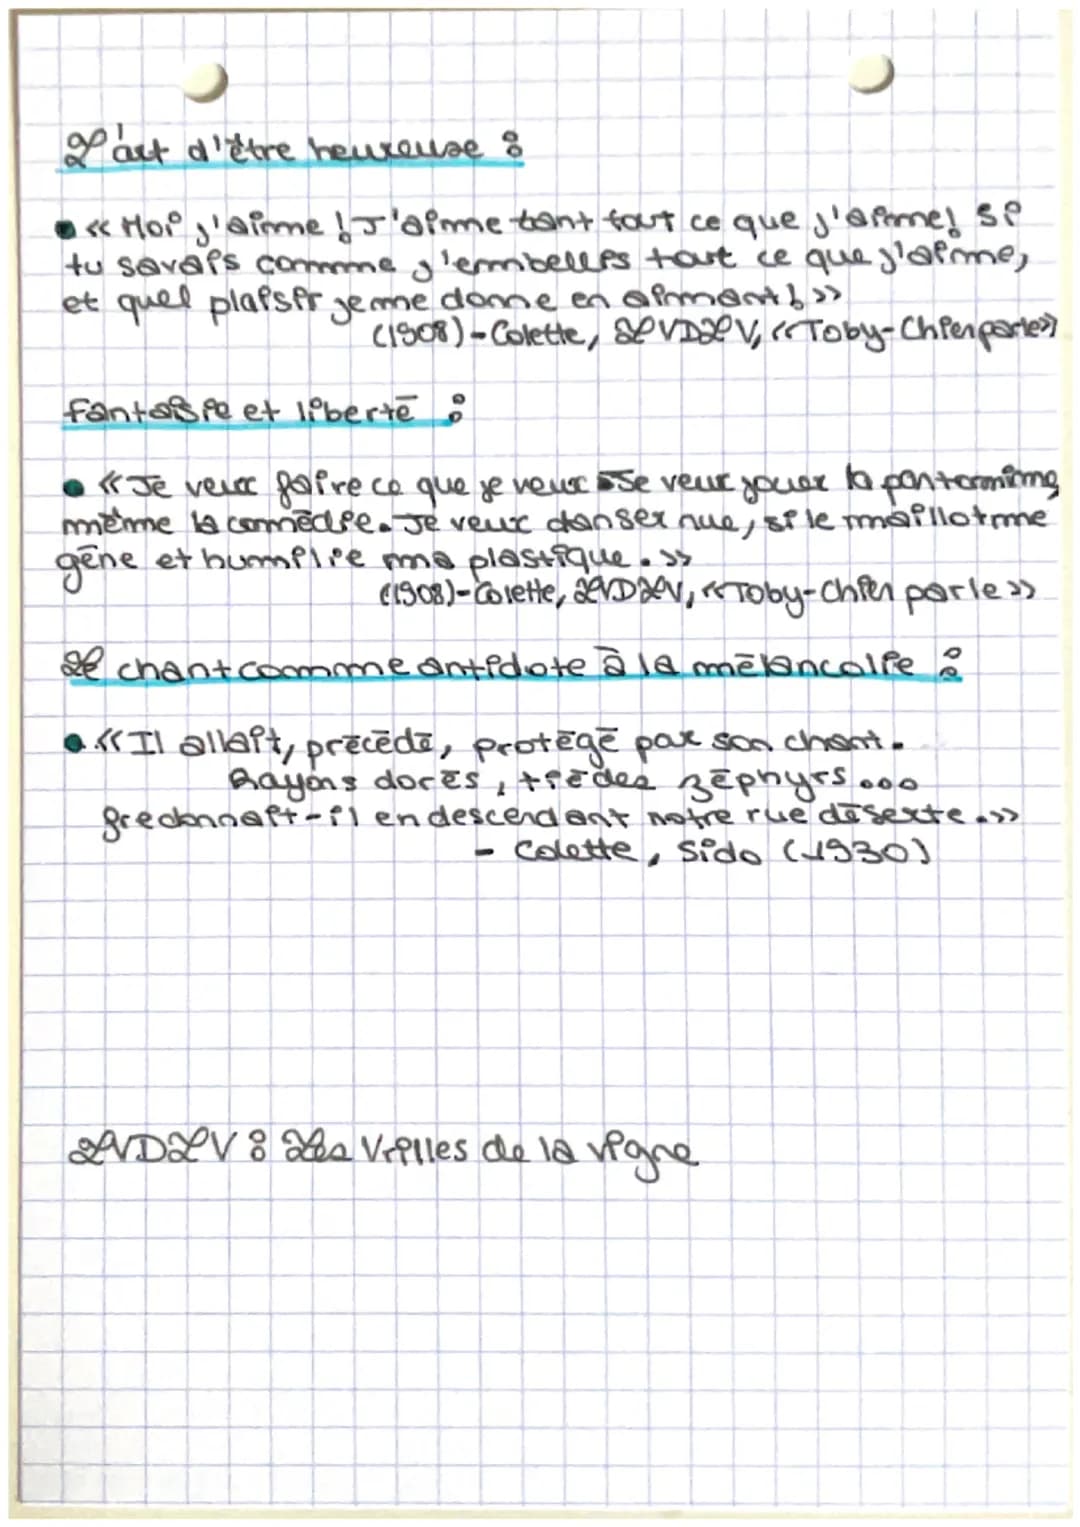 L'art d'être heureuse :
• « Moi j'aime ! J'aime tant tout ce que j'aime! Si
tu savais comme j'embellis tout ce que j'aime,
et quel plaisir je me donne en aimant ! »
(1908) - Colette, LVDLV, « Toby-Chien parle »
fantaisie et liberté :
• « Je veux faire ce que je veux. Je veux jouer la pantomime,
même la comédie. Je veux danser nue, si le maillot me
gêne et humilie ma plastique. »
(1908) - Colette, LVDLV, « Toby-Chien parle »
Le chant comme antidote à la mélancolie :
• « Il allait, précédé, protégé par son chant.
Rayons dorés, tièdes zéphyrs...
fredonnait-il en descendant notre rue déserte. »
- Colette, Sido (1930)
LVDLV : Les Vrilles de la vigne